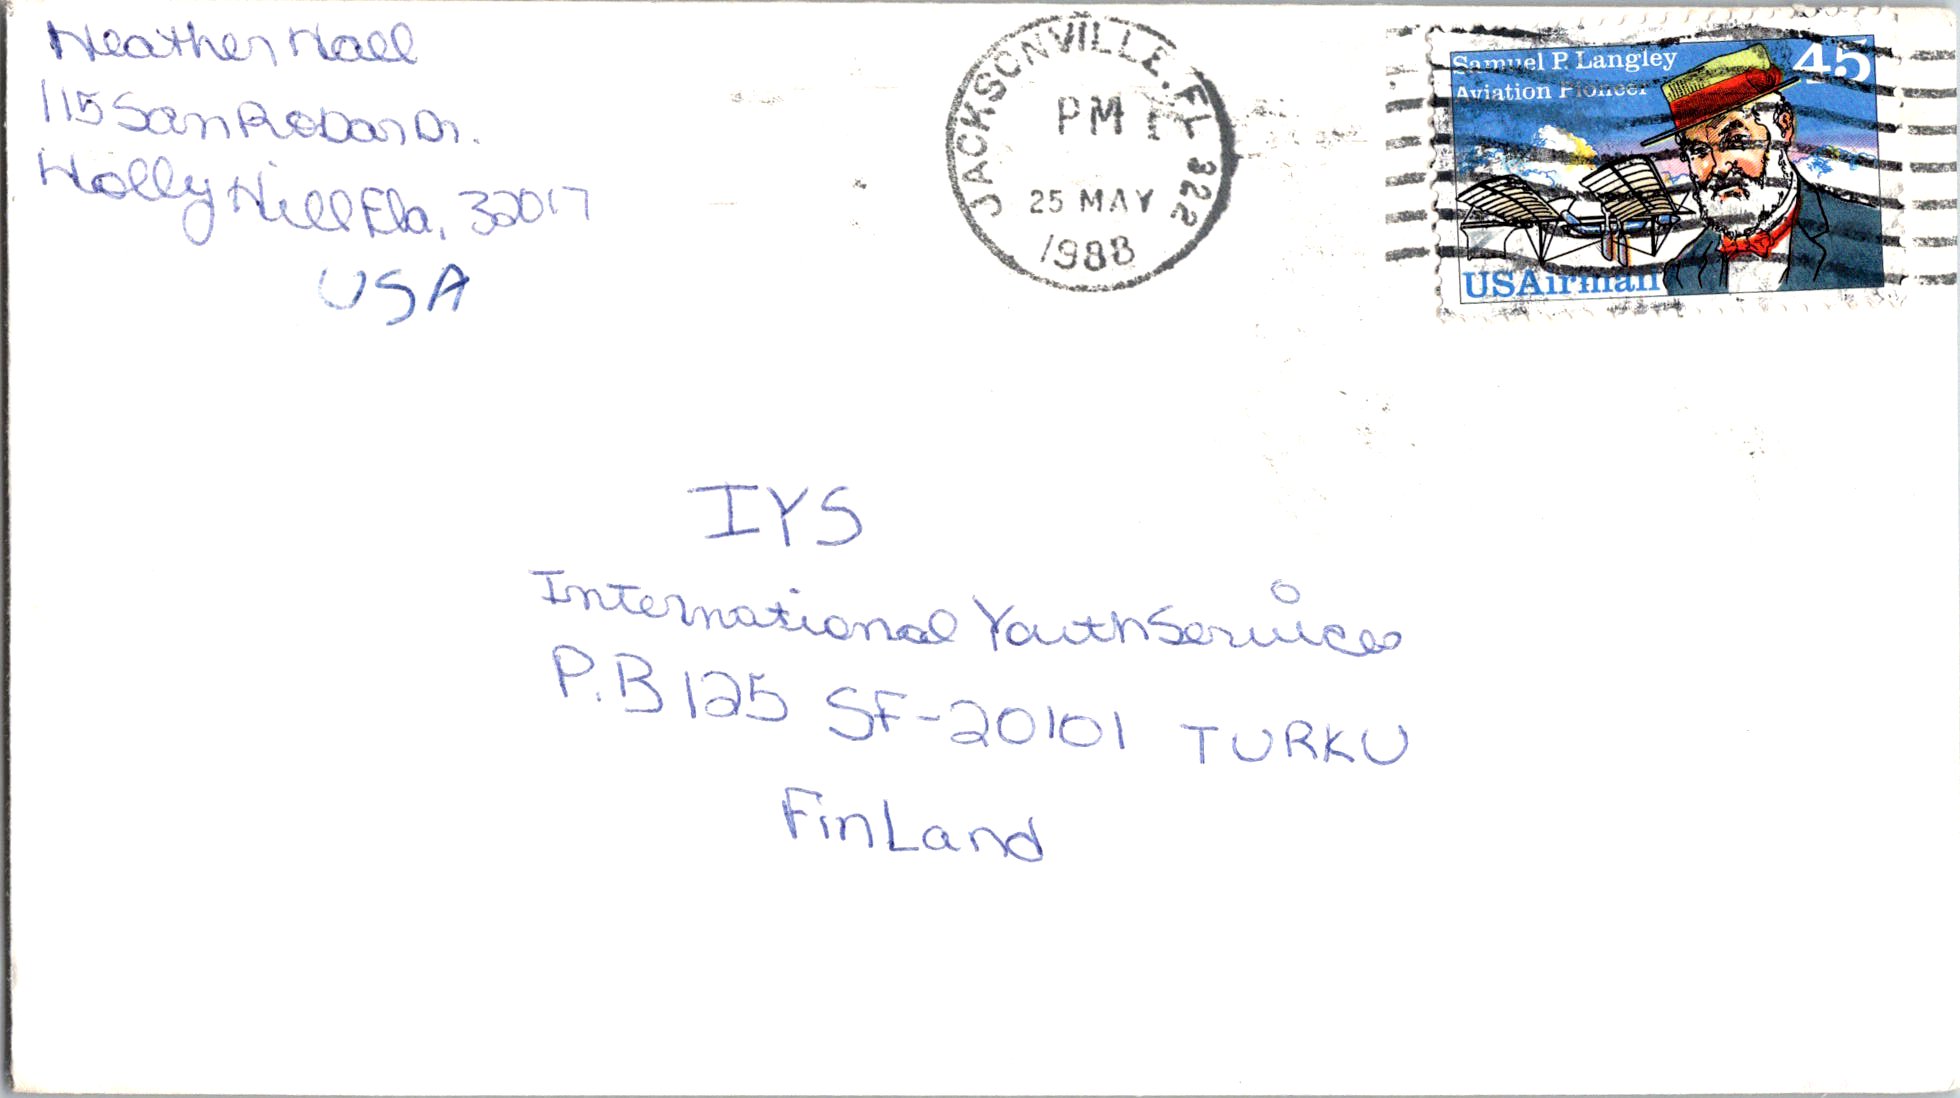 Heather Hall
115 San Roban Dr.
Holly Hill Fla, 32017
USA
JACKSONVILLE, FL 322
PM
25 MAY
1988
Samuel P. Langley
Aviation Pioneer
45
USAirmail
IYS
International Youth Service
P.B 125 SF-20101 TURKU
FinLand